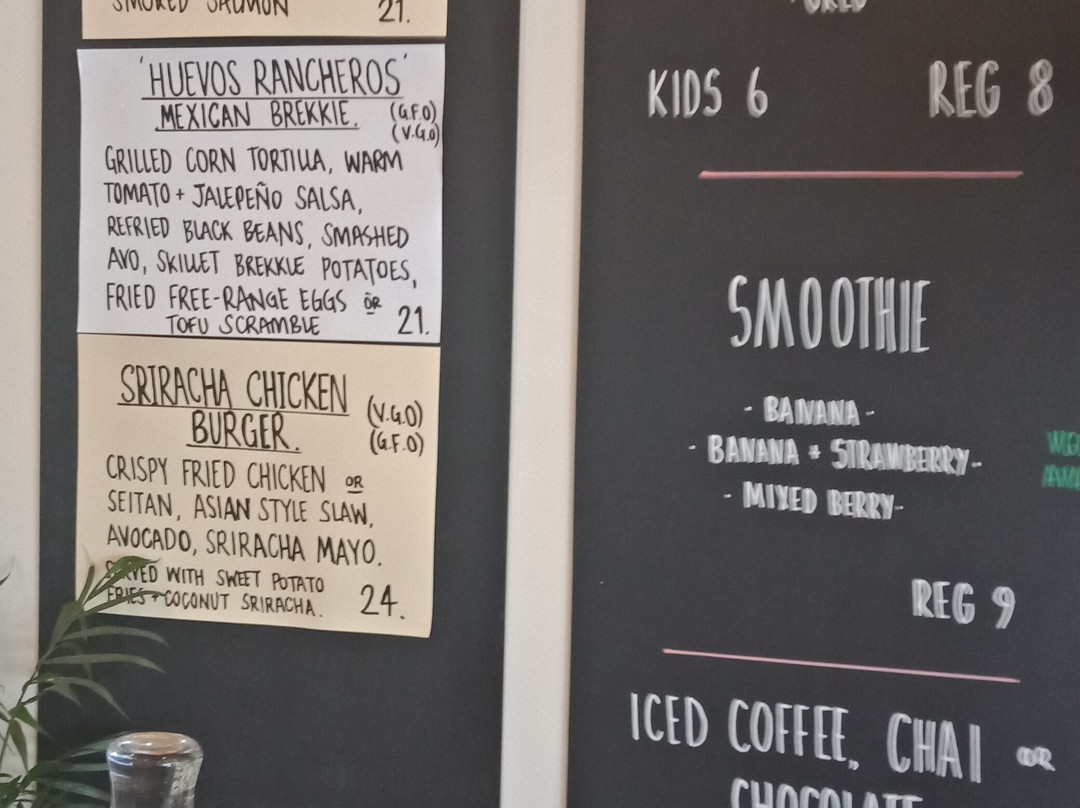 SMOKED SALMON 21.
'HUEVOS RANCHEROS'
MEXICAN BREKKIE. (G.F.O)
(V.G.O)
GRILLED CORN TORTILLA, WARM
TOMATO + JALEPEÑO SALSA,
REFRIED BLACK BEANS, SMASHED
AVO, SKILLET BREKKIE POTATOES,
FRIED FREE-RANGE EGGS OR
TOFU SCRAMBLE 21.
SRIRACHA CHICKEN
BURGER. (V.G.O)
(G.F.O)
CRISPY FRIED CHICKEN OR
SEITAN, ASIAN STYLE SLAW,
AVOCADO, SRIRACHA MAYO.
SERVED WITH SWEET POTATO
FRIES + COCONUT SRIRACHA. 24.
KIDS 6 REG 8
SMOOTHIE
- BANANA -
- BANANA + STRAWBERRY -
- MIXED BERRY -
REG 9
ICED COFFEE, CHAI OR
CHOCOLATE